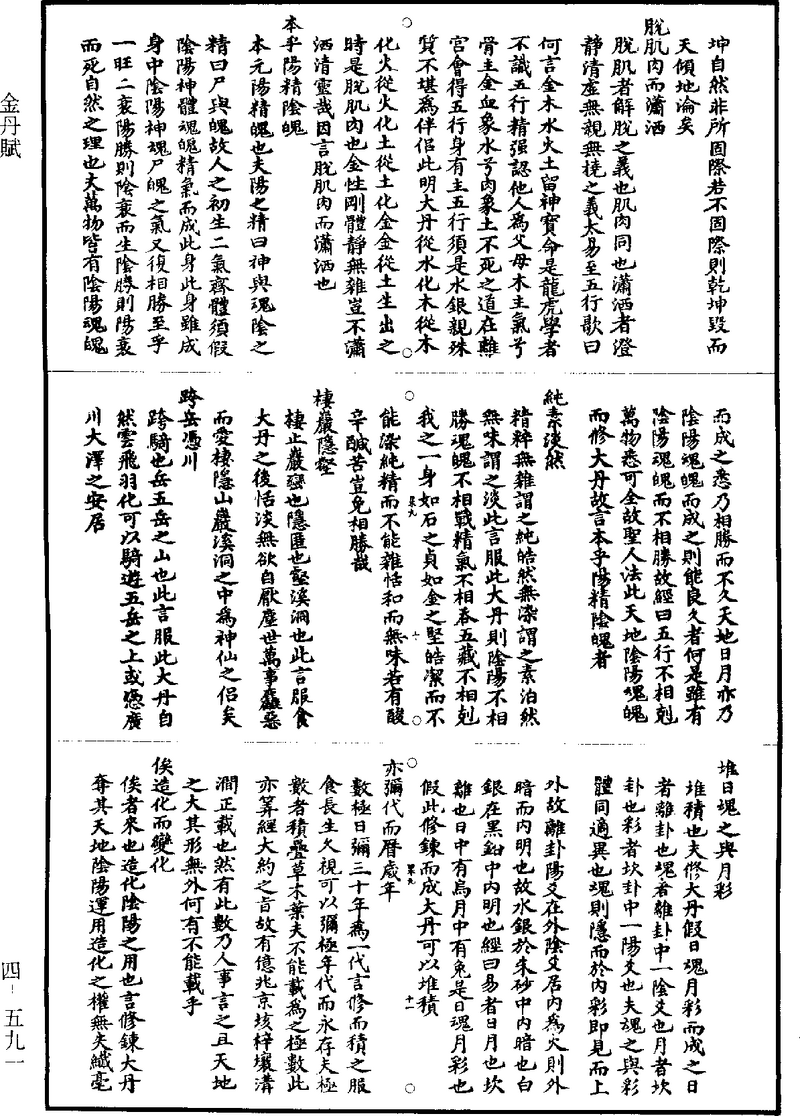 坤自然非所固際若不固際則乾坤毀而
天傾地淪矣
脫肌肉而瀟洒
脫肌者解脫之義也肌肉同也瀟洒者澄
靜清虛無親無撓之義太易至五行歌曰
何言金木水火土留神寶命是龍虎學者
不識五行精强認他人為父母木主氣兮
骨主金血象水兮肉象土不死之道在離
宮會得五行身有主五行須是水銀親殊
質不堪為伴侶此明大丹從水化木從木
化火從火化土從土化金金從土生出之
時是脫肌肉也金性剛體靜無雜豈不瀟
洒清靈哉因言脫肌肉而瀟洒也
本乎陽精陰魄
本元陽精魄也夫陽之精曰神與魂陰之
精曰尸與魄故人之初生二氣齊體須假
陰陽神體魂魄精氣而成此身此身雖成
身中陰陽神魂尸魄之氣又復相勝至乎
一旺二衰陽勝則陰衰而生陰勝則陽衰
而死自然之理也夫萬物皆有陰陽魂魄
而成之悉乃相勝而不久天地日月亦乃
陰陽魂魄而成之則能良久者何是雖有
陰陽魂魄而不相勝故經曰五行不相剋
萬物悉可全故聖人法此天地陰陽魂魄
而修大丹故言本乎陽精陰魄者
純素淡然
精粹無雜謂之純皓然無染謂之素泊然
無味謂之淡此言服此大丹則陰陽不相
勝魂魄不相戰精氣不相吞五藏不相剋
我之一身如石之貞如金之堅皓潔而不
能染純精而不能雜恬和而無味若有酸
辛鹹苦豈免相勝哉
棲巖隱壑
棲止巖巒也隱匿也壑溪洞也此言服食
大丹之後恬淡無欲自厭塵世萬事麤惡
而愛棲隱山巖溪洞之中為神仙之侶矣
跨岳憑川
跨騎也岳五岳之山也此言服此大丹自
然雲飛羽化可以騎遊五岳之上或憑廣
川大澤之安居
堆日魂之與月彩
堆積也夫修大丹假日魂月彩而成之日
者離卦也魂者離卦中一陰爻也月者坎
卦也彩者坎卦中一陽爻也夫魂之與彩
體同適異也魂則隱而於內彩即見而上
外故離卦陽爻在外陰爻居內為火則外
暗而內明也故水銀於朱砂中內暗也白
銀在黑鉛中內明也經曰易者日月也坎
離也日中有烏月中有兔是日魂月彩也
假此修鍊而成大丹可以堆積
亦彌代而曆歲年
數極曰彌三十年為一代言修而積之服
食長生久視可以彌極年代而永存夫極
數者積疊草木葉夫不能載為之極數此
亦筭經大約之旨故有億兆京垓梓壤溝
澗正載也然有此數乃人事言之且天地
之大其形無外何有不能載乎
俟造化而變化
俟者來也造化陰陽之用也言修鍊大丹
奪其天地陰陽運用造化之權無失纖毫
金丹賦
四-五九一